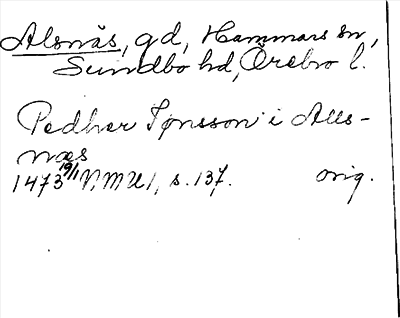 Alsnäs, gd, Hammars sn,
Sundbo hd, Örebro l.
Pedher Jønsson i Alls-
næs
1473 19/1 NMU 1, s. 137. orig.